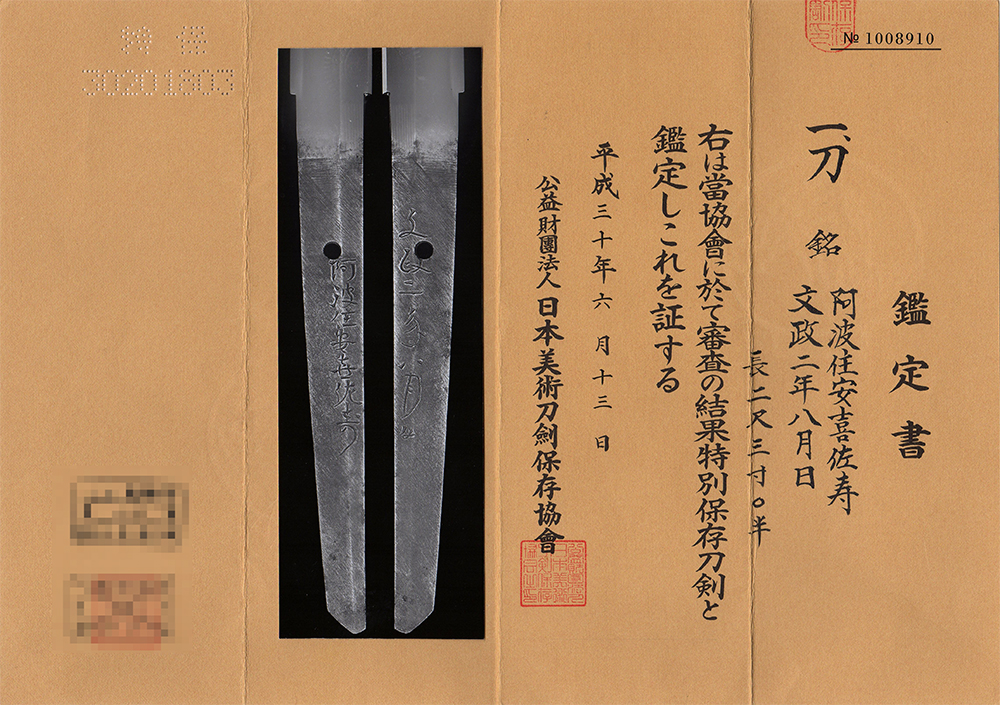 № 1008910
鑑定書
一、刀 銘 阿波住安喜佐寿
文政二年八月日
長二尺三寸〇半
右は當協會に於て審査の結果特別保存刀剣と
鑑定しこれを証する
平成三十年六月十三日
公益財團法人 日本美術刀劍保存協會
文政二年八月日
阿波住安喜佐寿
特保
30201803